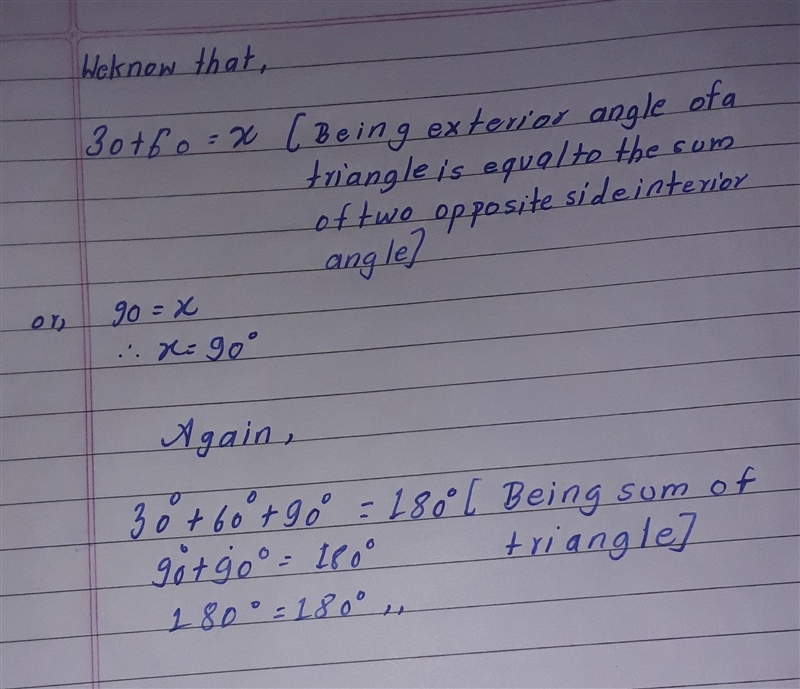 We know that,
30+60 = x [Being exterior angle of a
triangle is equal to the sum
of two opposite side interior
angle]
or, 90 = x
∴ x = 90°
Again,
30° + 60° + 90° = 180° [Being sum of
triangle]
90° + 90° = 180°
180° = 180° ,,